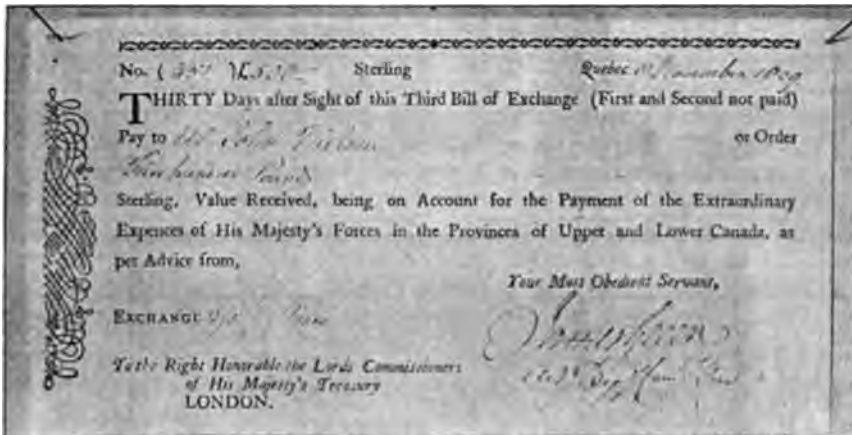 No. ( ) £ Sterling Quebec November
THIRTY Days after Sight of this Third Bill of Exchange (First and Second not paid)
Pay to John or Order
Pounds
Sterling, Value Received, being on Account for the Payment of the Extraordinary
Expences of His Majesty's Forces in the Provinces of Upper and Lower Canada, as
per Advice from,
Your Most Obedient Servant,
EXCHANGE
To the Right Honorable the Lords Commissioners
of His Majesty's Treasury
LONDON.